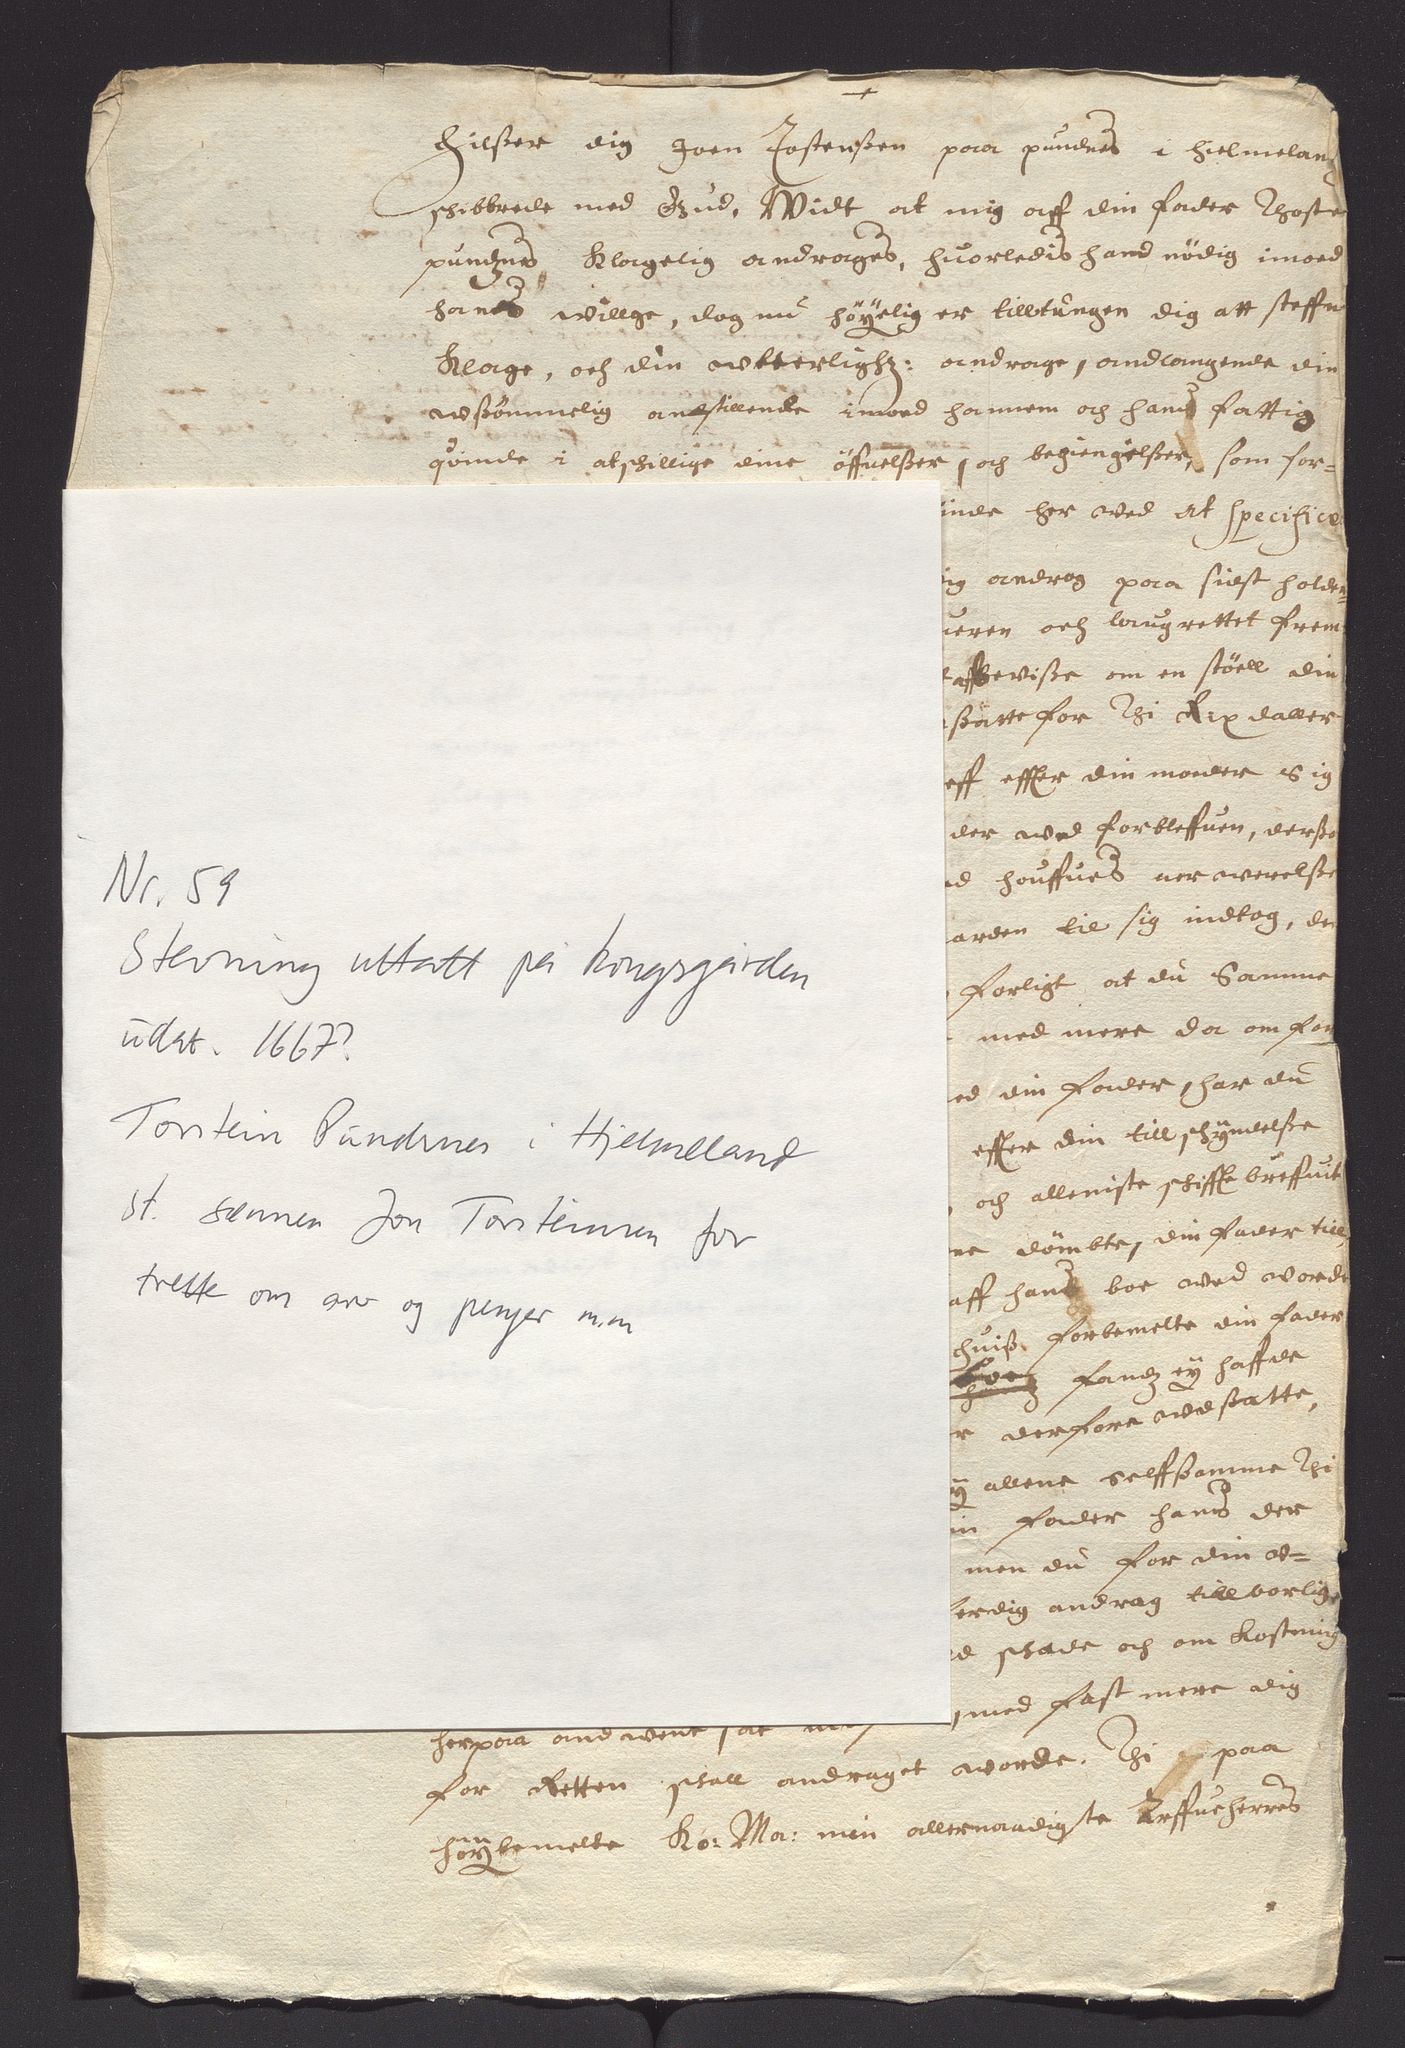 Hilßer dig Joen Tostenßen paa pundnes i hielmeland
schibbrede med Gud, Widt at mig aff din fader Thoste
pundnes klagelig andrages, huorledis hand nödig imoed
hans willge, dog nu höÿelig er tilltungen dig att steffne
klage, och din wtterlighz: andrage, andlangende din
wßömmelig anstillende imoed hannem och hans fattig
quinde i atschillige dine öffuelßer, och begiengelßer, som for=
inde her wed at specificer
ig androg paa sidst holden=
ueren och laugrettet frem
affbeviße om en stöell din
ßatte for Thi Rix daller
eff effter din moder sig
der wed forbleffuen, derßo
d houffues nerwerelße
arden til sig indtog, de
forligt at du samme
med mere da om for
ed din fader, har du
effter din till schÿndelße
och alleniste schiffte breffuit
ne dömbte, din fader till
aff hans boe wed worde
huiß forbemelte din fader
fandz eÿ haffde
r derfore wdßatte,
ÿ allene selffsamme Thi
in fader hans der
men du for din w=
ferdig andrag tillbörlig
d schade och om kostning
herpaa andwent, at , med fast mere dig
for Retten schall andraget worde. Thi paa
höÿbemelte Ko: Ma: min allernaadigste Arffueherres

Nr. 59
Stevning uttatt på kongsgården
udat. 1667?
Torstein Pundnes i Hjelmeland
st. sønnen Jon Torsteinsen for
trette om arv og penger m.m